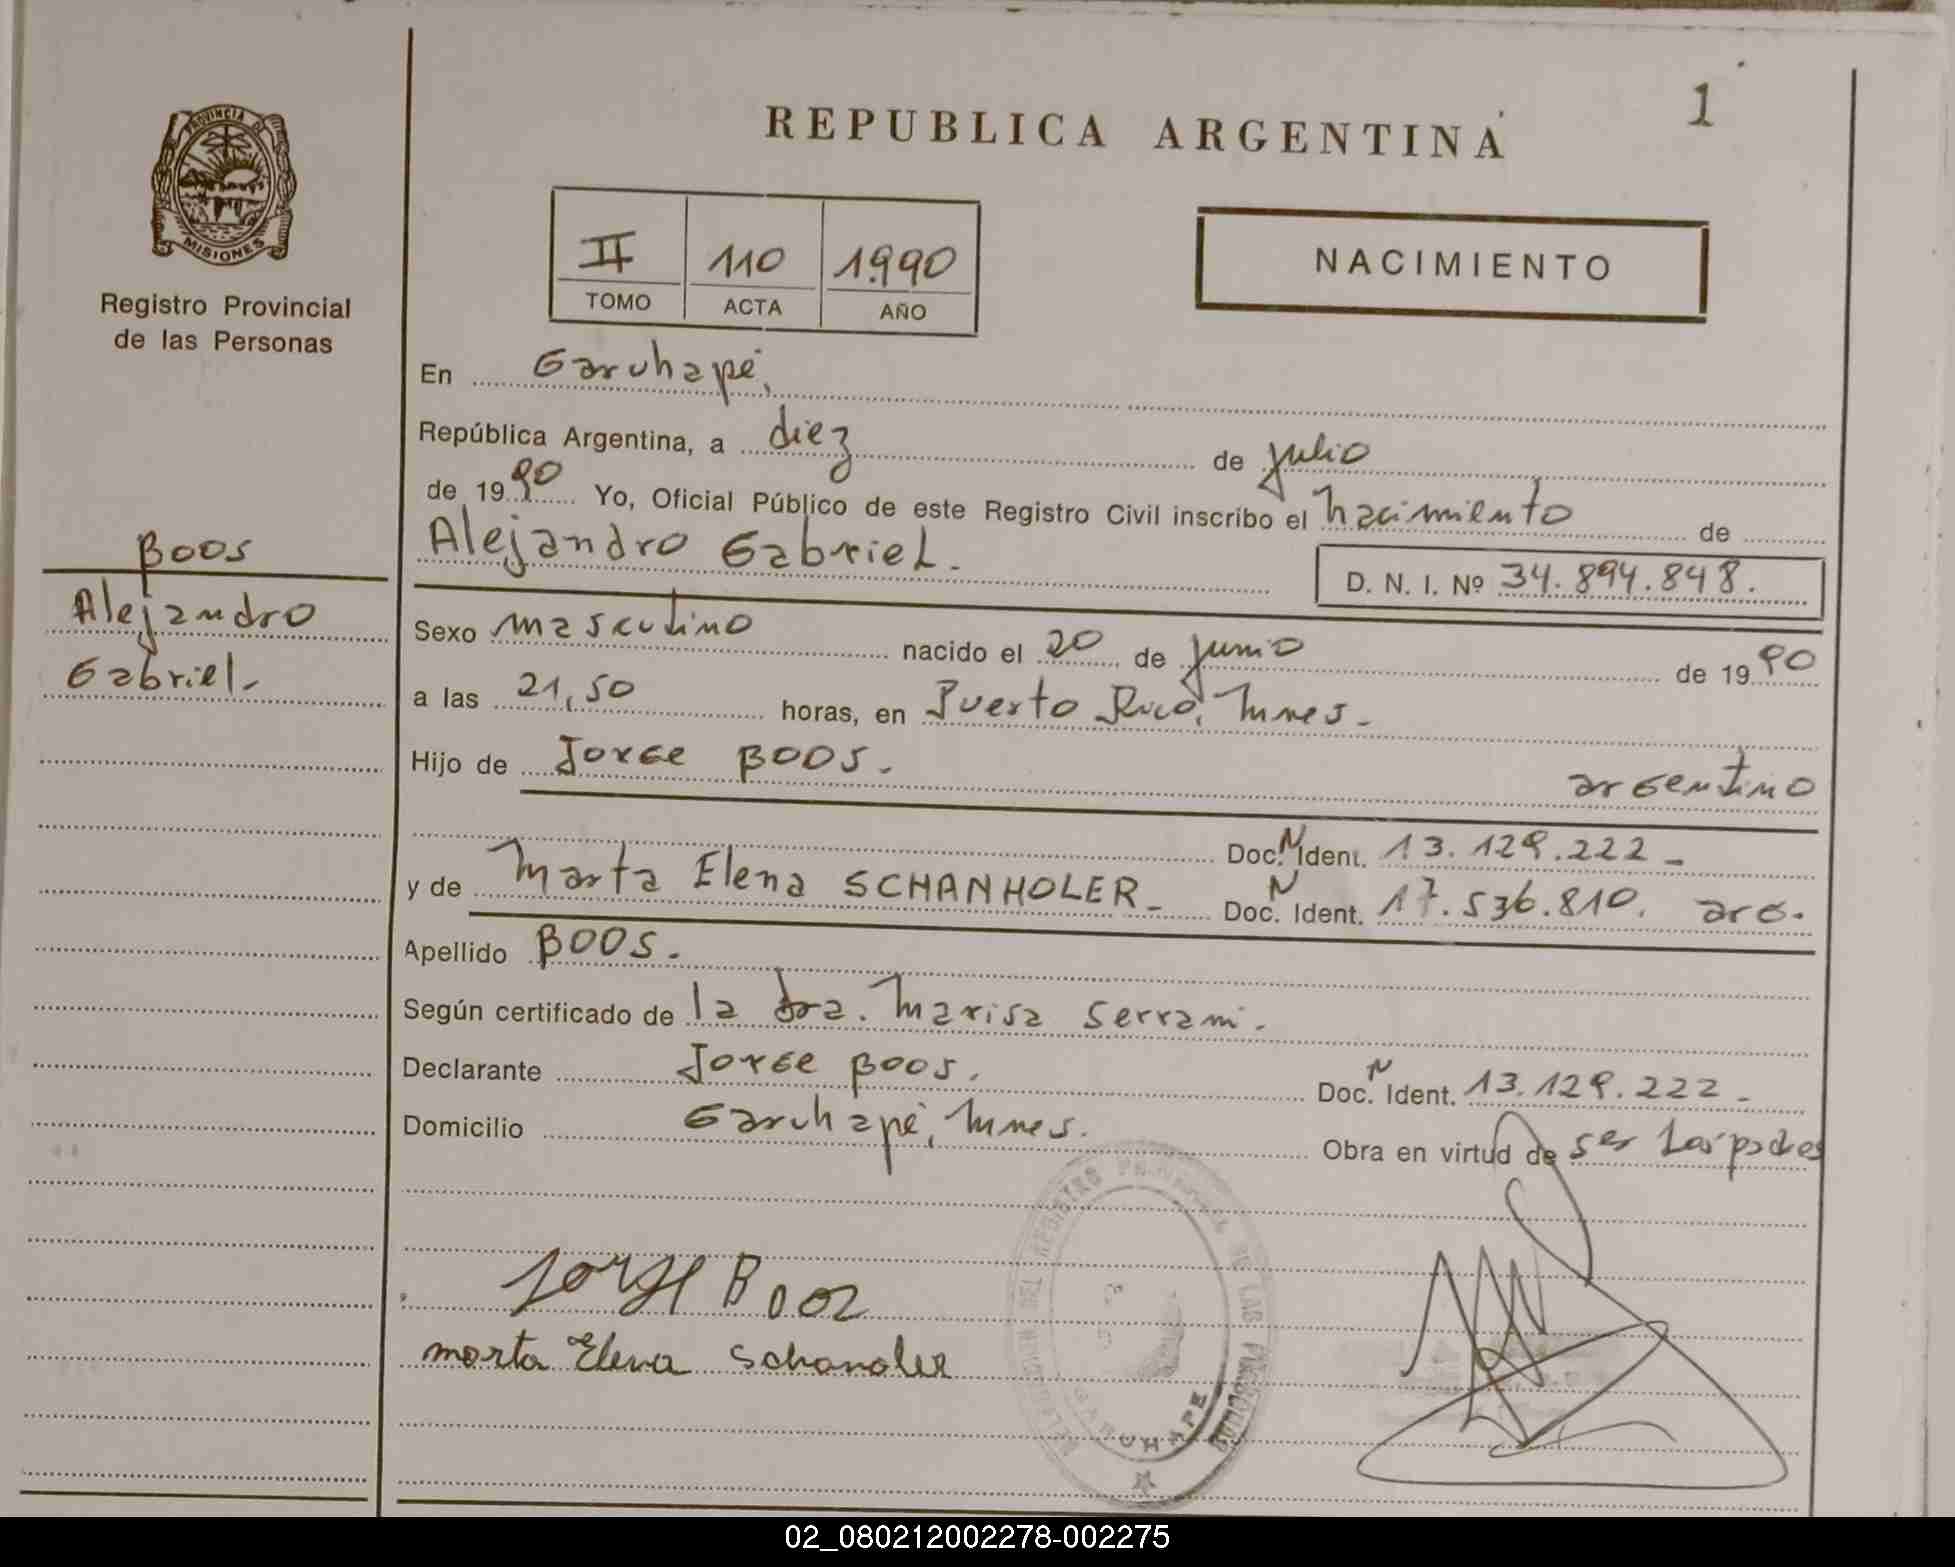 PROVINCIA DE
MISIONES
Registro Provincial
de las Personas
BOOS
Alejandro
Gabriel.-
1
REPUBLICA ARGENTINA
II 110 1.990
TOMO ACTA AÑO
NACIMIENTO
En Garuhapé,
República Argentina, a diez de julio
de 1990 Yo, Oficial Público de este Registro Civil inscribo el nacimiento de
Alejandro Gabriel.
D. N. I. Nº 34.894.848.
Sexo masculino nacido el 20 de junio de 1990
a las 21,50 horas, en Puerto Rico, Mnes.
Hijo de Jorge BOOS. argentino
Doc. N Ident. 13.129.222 -
y de Marta Elena SCHANHOLER - Doc. N Ident. 17.536.810. arg.
Apellido BOOS.
Según certificado de la dra. Marisa Serrani.
Declarante Jorge BOOS. Doc. N Ident. 13.129.222 -
Domicilio Garuhapé, Mnes. Obra en virtud de ser los padres
Jorge Booz
Marta Elena Schanoler
REGISTRO PROVINCIAL DE LAS PERSONAS
GARUHAPE
02_080212002278-002275